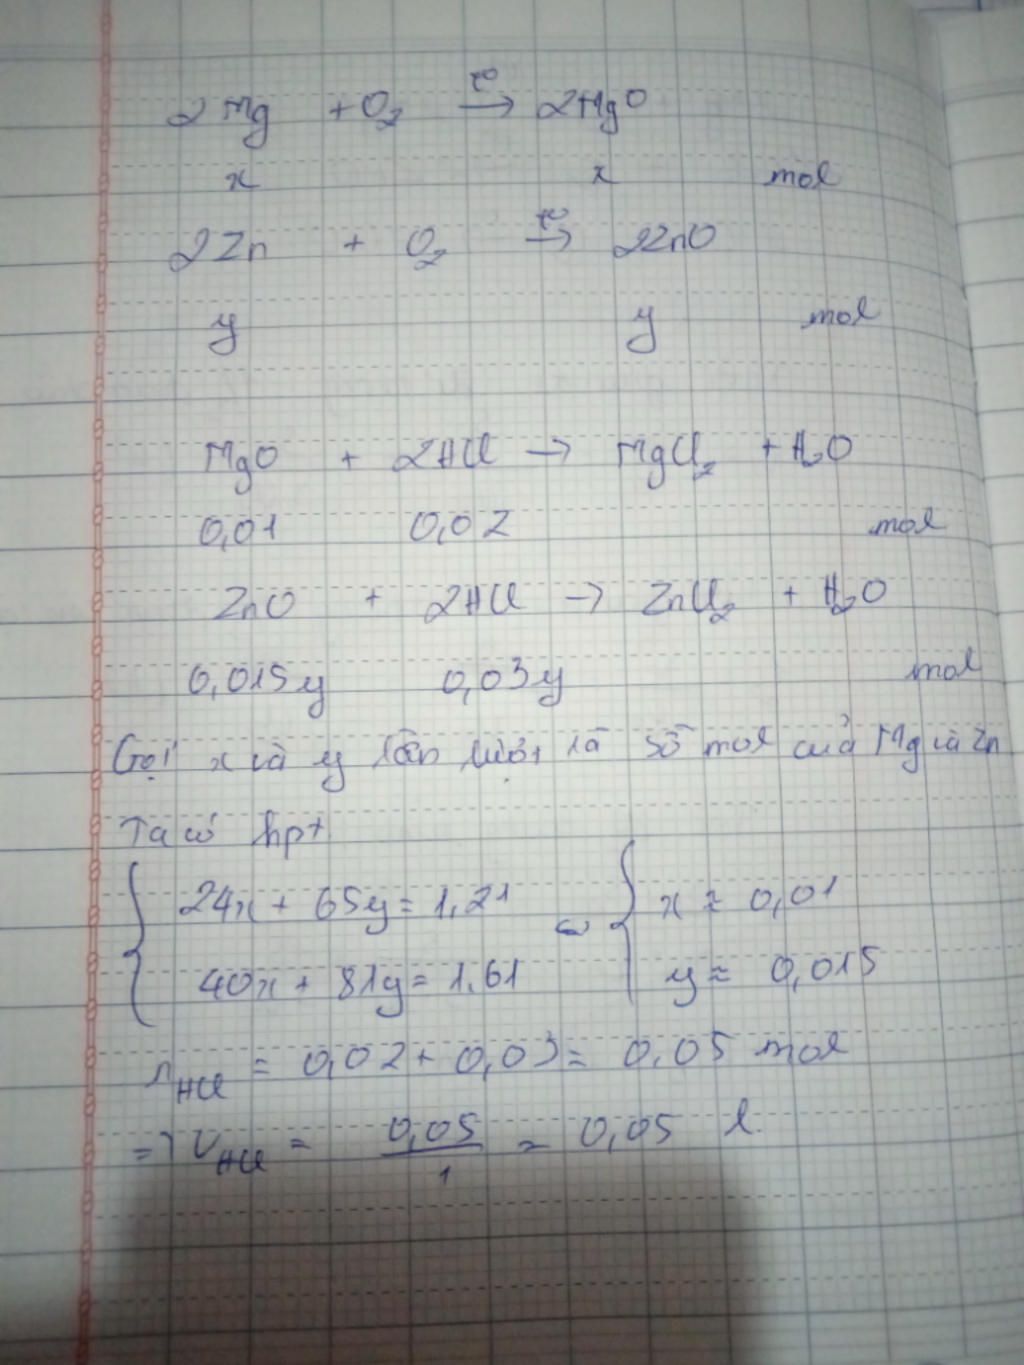 2Mg + O₂ →(t⁰) 2MgO
x x mol
2Zn + O₂ →(t⁰) 2ZnO
y y mol
MgO + 2HCl → MgCl₂ + H₂O
0,01 0,02 mol
ZnO + 2HCl → ZnCl₂ + H₂O
0,015y 0,03y mol
Gọi x và y lần lượt là số mol của Mg và Zn
Ta có hpt
{ 24x + 65y = 1,21 ⇔ { x ≈ 0,01
40x + 81y = 1,61 y ≈ 0,015
nHCl = 0,02 + 0,03 = 0,05 mol
=> VHCl = 0,05/1 = 0,05 l.